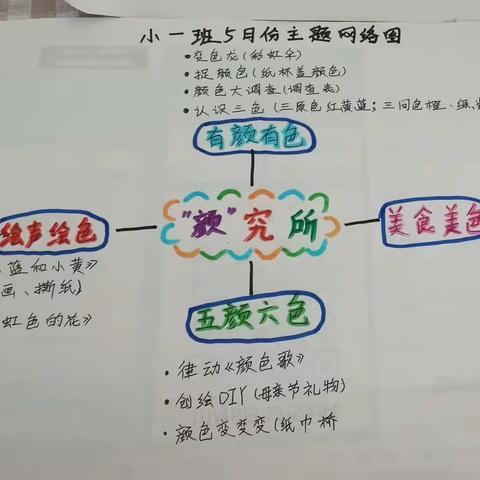 小一班5月份主题网络图
•变色龙(彩虹伞)
•捉颜色(纸杯盖颜色)
•颜色大调查(调查表)
•认识三色(三原色红黄蓝;三间色橙、绿、
有颜有色
绘声绘色
"颜"究所
美食美色
蓝和小黄》
画、撕纸)
虹色的花》
五颜六色
•律动《颜色歌》
•创绘DIY(母亲节礼物)
•颜色变变变(纸巾桥